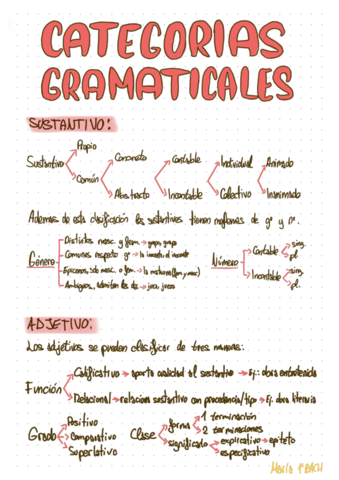 CATEGORIAS
GRAMATICALES
SUSTANTIVO:
Sustantivo
Propio
Común
Concreto
Abstracto
Contable
Incontable
Individual
Colectivo
Animado
Inanimado
Además de esta clasificación los sustantivos tienen morfemas de gº y nº.
Género
Distintos masc. y fem. → gapo, gapa
Comunes respecto gº → la amante, el amante
Epicenos, solo masc. o fem. →
Ambiguos, admiten los dos →
Número
Contable
sing.
pl.
Incontable
sing.
pl.
ADJETIVO:
Los adjetivos se pueden clasificar de tres maneras:
Función
Calificativo → aporta cualidad al sustantivo → Ej: obra entretenida
Relacional → relación sustantivo con procedencia/tipo → Ej: obra literaria
Grado
Positivo
Comparativo
Superlativo
Clase
forma
1 terminación
2 terminaciones
significado
explicativo → epíteto
especificativo
María 1º BACH